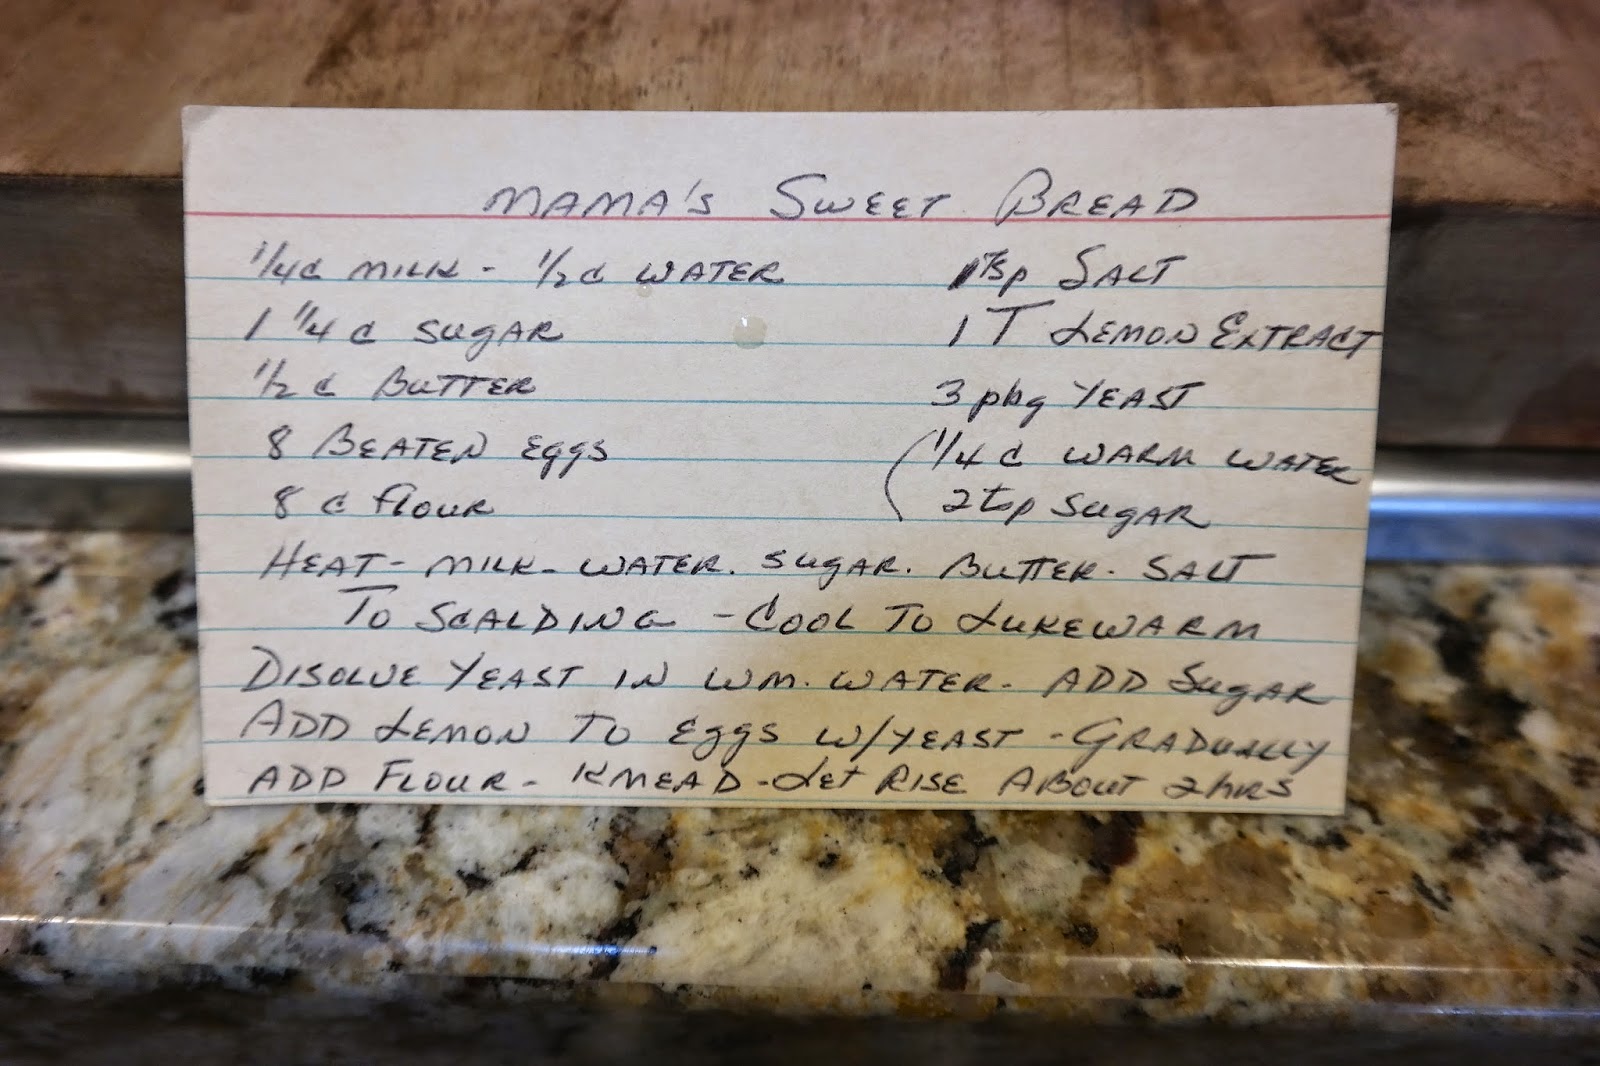 MAMA'S SWEET BREAD
1/4 c MILK - 1/2 c WATER
1 1/4 c SUGAR
1/2 c BUTTER
8 BEATEN EGGS
8 c FLOUR
1 Tsp SALT
1 T LEMON EXTRACT
3 pkg YEAST
(1/4 c WARM WATER
2 tsp SUGAR
HEAT - MILK - WATER. SUGAR. BUTTER - SALT
TO SCALDING - COOL TO LUKEWARM
DISOLVE YEAST IN WM. WATER - ADD SUGAR
ADD LEMON TO EGGS W/YEAST - GRADUALLY
ADD FLOUR - KNEAD - LET RISE ABOUT 2 hrs